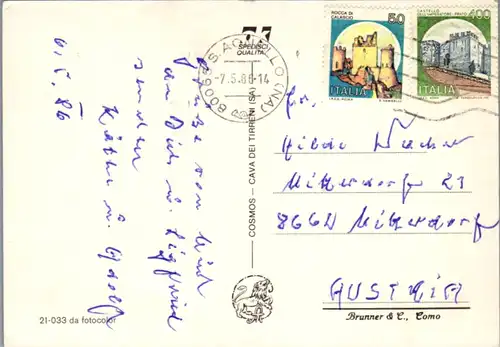 6.5.86
Grüsse von hier
an Dich u. Siegfried
senden
Käthe u. Adolf
21-033 da fotocolor
COSMOS — CAVA DEI TIRRENI (SA)
SPEDISCI
QUALITÀ
80065 S. AGNELLO (NA)
-7.5.86-14
ROCCA DI
CALASCIO
50
ITALIA
CASTELLO
DELL'IMPERATORE - PRATO
400
ITALIA
Hilde
Mitterdorf 21
8662 Mitterdorf
AUSTRIA
Brunner & C., Como